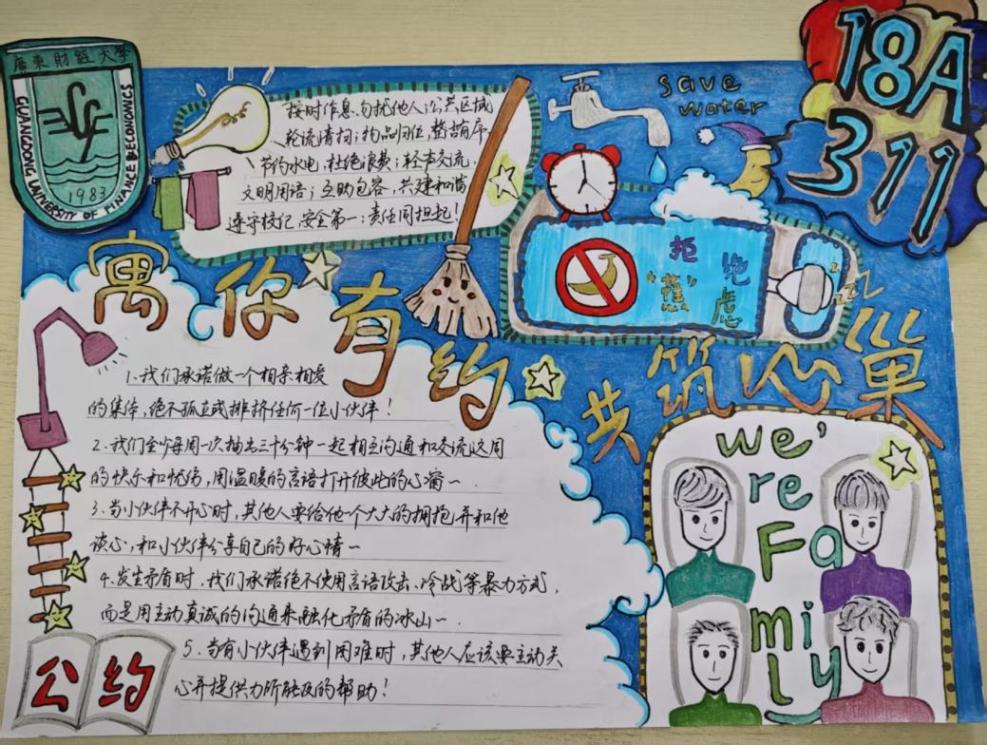 廣東財經大學
GUANGDONG UNIVERSITY OF FINANCE & ECONOMICS
1983
按时作息,勿扰他人;公共区域
轮流清扫;物品归位,整洁有序
节约水电,杜绝浪费;轻声交流,
文明用语;互助包容,共建和谐
遵守校纪,安全第一;责任同担起!
save
water
18A
311
拒绝
"蕉"虑
zzz
寓你有约
共筑心巢
1.我们承诺做一个相亲相爱
的集体,绝不孤立或排挤任何一位小伙伴!
2.我们至少每周一次抽出三十分钟一起相互沟通和交流这周
的快乐和忧伤,用温暖的言语打开彼此的心扉~
3.当小伙伴不开心时,其他人要给他一个大大的拥抱,并和他
谈心,和小伙伴分享自己的好心情~
4.发生矛盾时,我们承诺绝不使用言语攻击、冷战等暴力方式,
而是用主动真诚的沟通来融化矛盾的冰山~
5.当有小伙伴遇到困难时,其他人应该要主动关
心并提供力所能及的帮助!
公约
we'
re
Fa
mi
ly